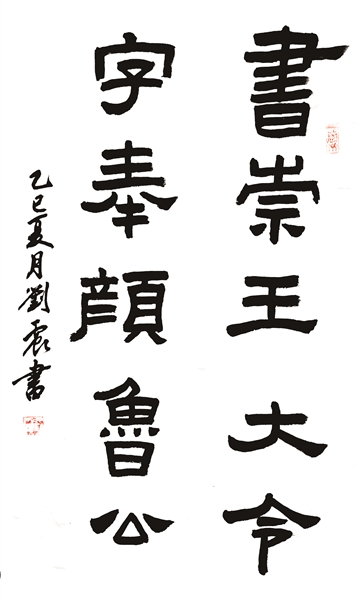 書崇王大令
字奉顏魯公
乙巳夏月劉震書